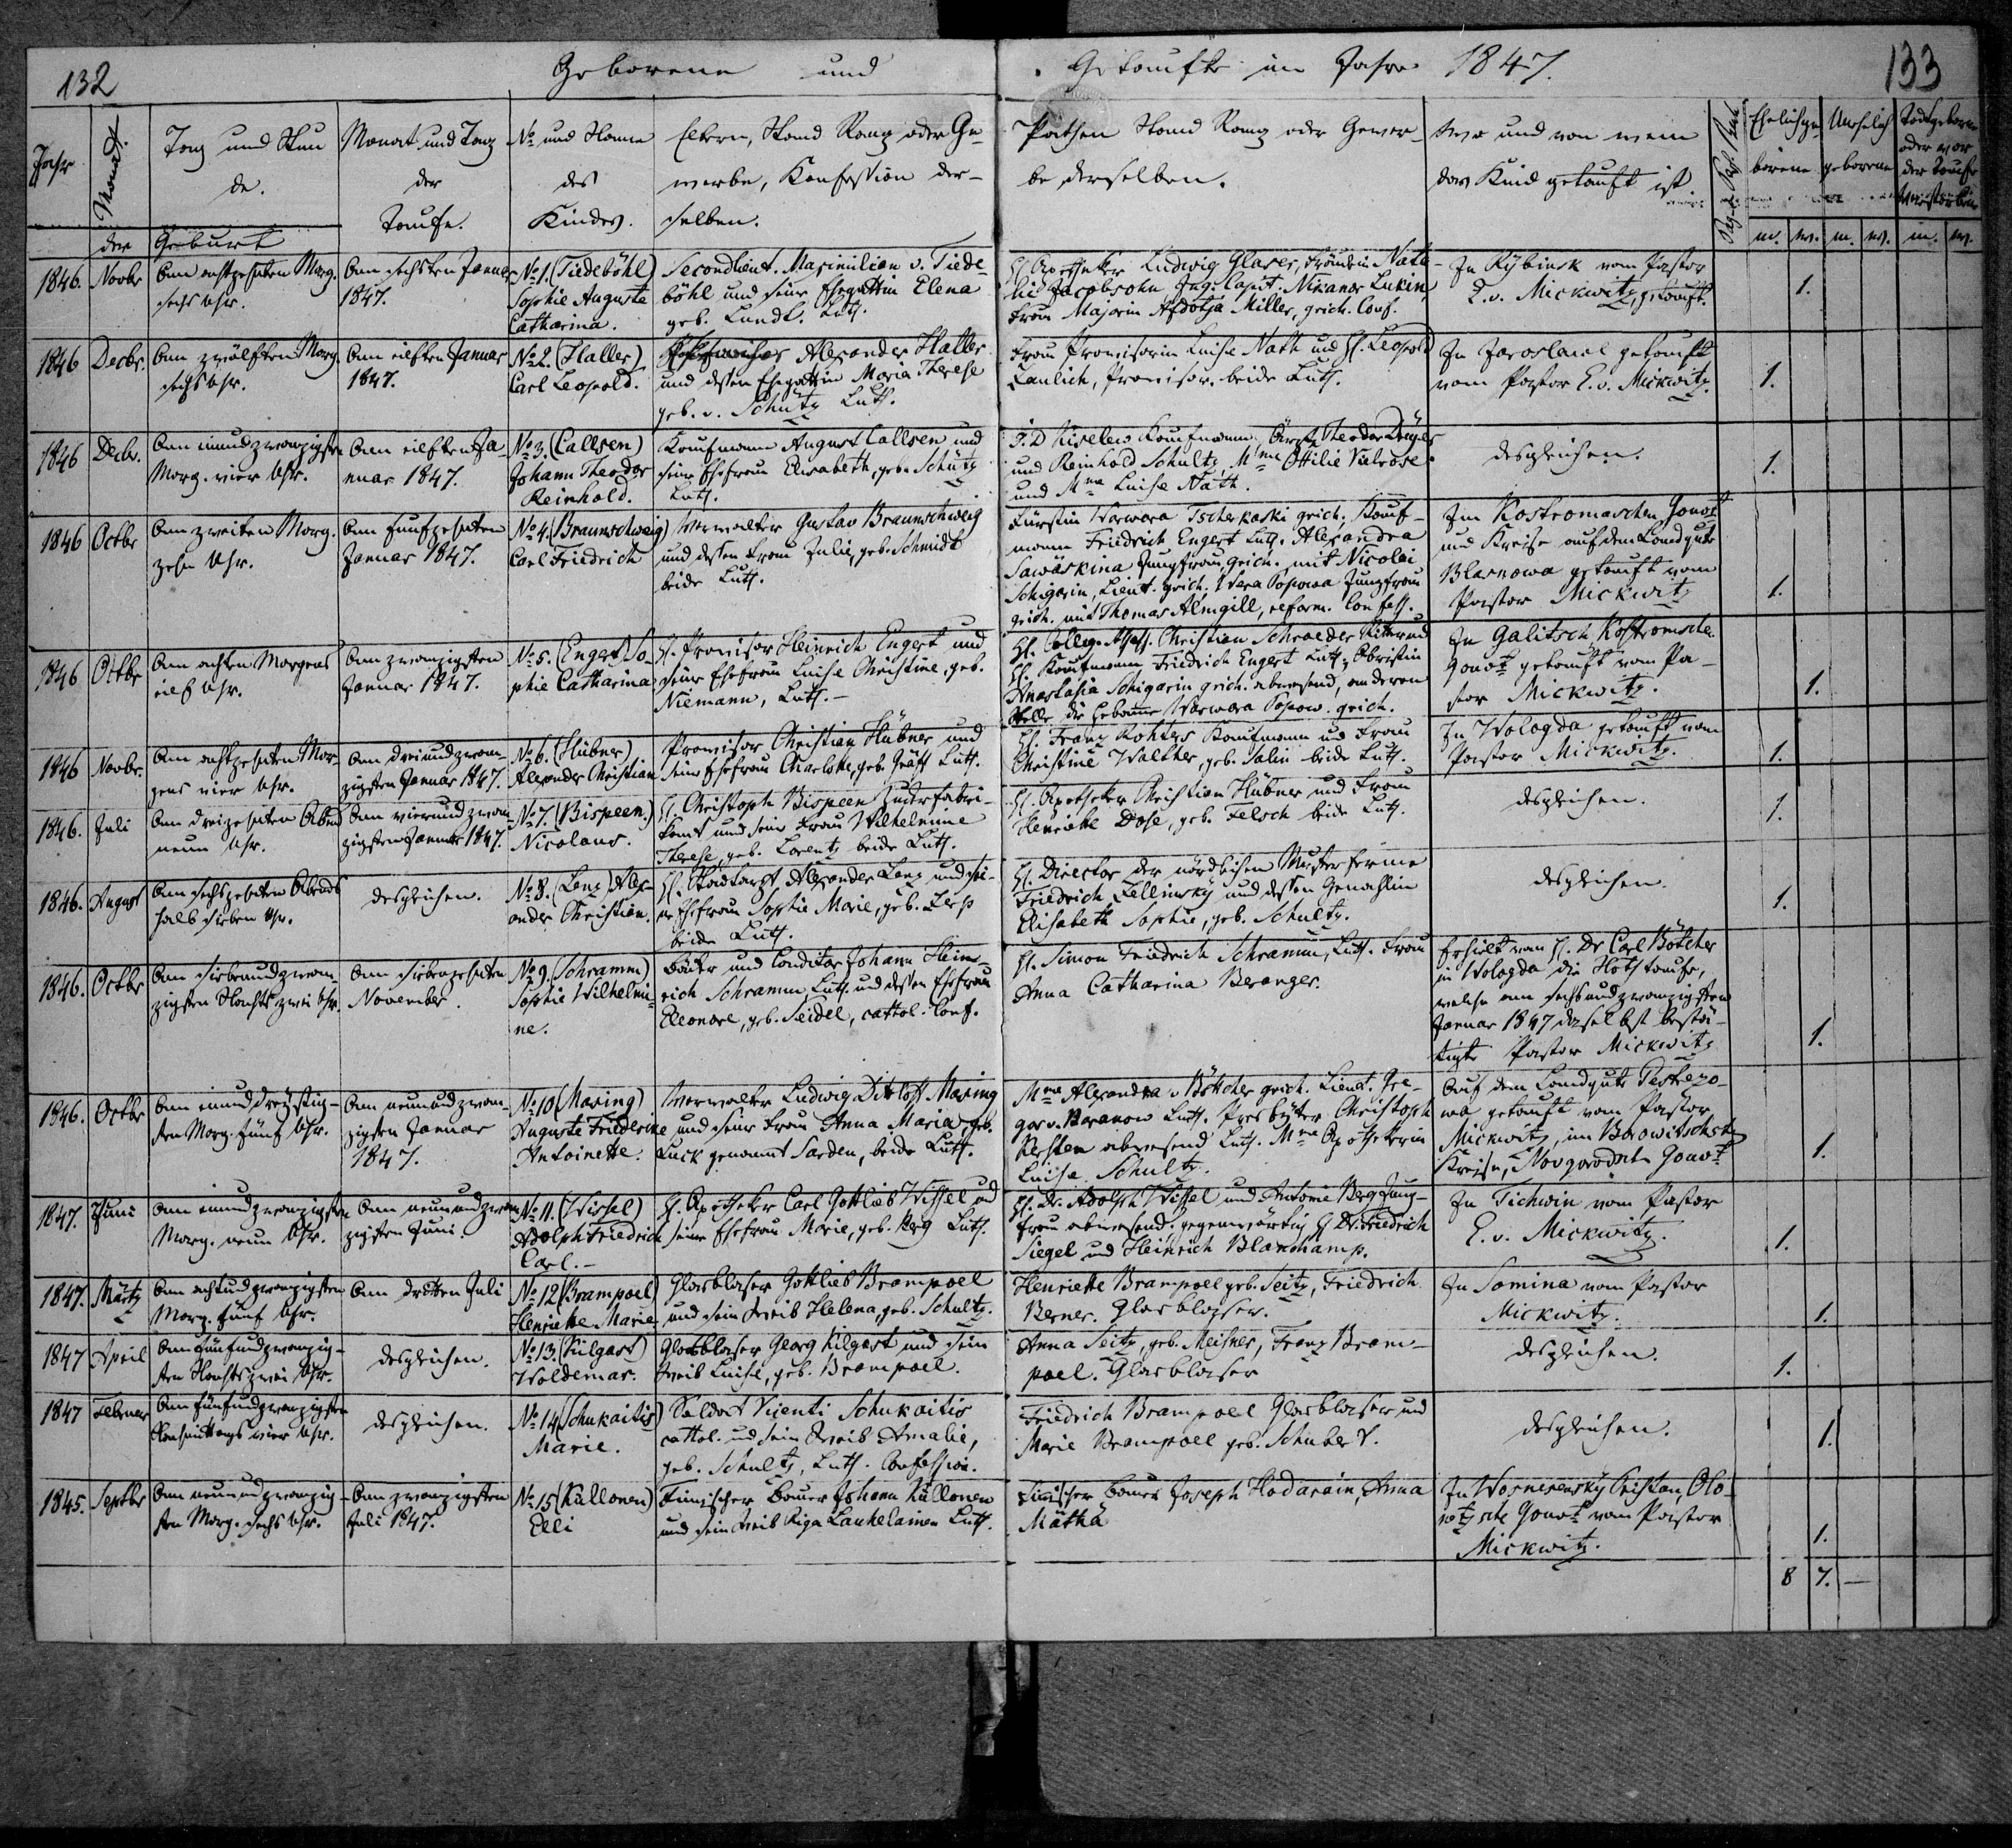 132
Geborene und
Getaufte im Jahre 1847.
133
Jahr
Monat
Tag und Stun
de.
der
Geburt
Monat und Tag
der
Taufe.
No und Name
des
Kindes.
Eltern, Stand Rang oder Ge-
werbe, Konfession der-
selben.
Pathen Stand Rang oder Gewer-
be derselben.
Wo und von wem
das Kind getauft ist.
Ehelichge-
borene
Unehelich
geborene
Todtgeborene
oder vor
der Taufe
Verstorbene
m. w. m. w. m. w.
1846. Novbr
Am achtzehnten Morg.
sechs Uhr.
Am sechsten Januar
1847.
No 1. (Tiedeböhl)
Sophie Auguste
Catharina.
Secondlieut. Maximilian v. Tiede-
böhl und seine Ehegattin Elena
geb. Lundt. Luth.
H. Apotheker Ludwig Glaser, Fräulein Nata-
lie Jacobsohn Ing. Capit. Nikanor Lukin,
Frau Majorin Afdotja Miller, griech. Conf.
In Rybinsk vom Pastor
E. v. Mickwitz, getauft.
1.
1846 Decbr.
Am zwölften Morg.
sechs Uhr.
Am eilften Januar
1847.
No 2. (Haller)
Carl Leopold.
Alexander Haller
und dessen Ehegattin Maria Therese
geb. v. Schütz Luth.
Frau Provisorin Luise Nath und H. Leopold
Zaulich, Provisor. beide Luth.
In Jaroslawl getauft
vom Pastor E. v. Mickwitz.
1.
1846 Decbr.
Am einundzwanzigsten
Morg. vier Uhr.
Am eilften Ja-
nuar 1847.
No 3. (Callsen)
Johann Theodor
Reinhold.
Kaufmann August Callsen und
seine Ehefrau Elisabeth, geb. Schütz
Luth.
J. D Kiselew Kaufmann, Theodor
und Reinhold Schultz, Mme Ottilie
und Mme Luise Nath.
desgleichen.
1.
1846 Octbr
Am zweiten Morg.
zehn Uhr.
Am funfzehnten
Januar 1847.
No 4. (Braunschweig)
Carl Friedrich
Verwalter Gustav Braunschweig
und dessen Frau Julie, geb. Schmidt
beide Luth.
Fürstin Warwara Tscherkaski griech. Kauf-
mann Friedrich Engert Luth. Alexandra
Sawäskina Jungfrau, griech. mit Nicolai
Schigarin, Lieut. griech. Wera Popowa Jungfrau
griech. mit Thomas Almgill, reform. Confess.
Im Kostromaschen Gouvt
und Kreise auf dem Landgute
Blasnowa getauft vom
Pastor Mickwitz
1.
1846 Octbr
Am achten Morgens
eilf Uhr.
Am zwanzigsten
Januar 1847.
No 5. (Engert) So-
phie Catharina
H. Provisor Heinrich Engert und
seine Ehefrau Luise Christine, geb.
Niemann, Luth. —
H. Colleg. Assess. Christian Schroeder Ritter und
H. Kaufmann Friedrich Engert Luth. Obristin
Anastasia Schigarin griech. abwesend, an deren
Stelle die Hebamme Warwara Popow. griech.
In Galitsch Kostromsche.
Gouvt getauft vom Pa-
stor Mickwitz.
1.
1846 Novbr.
Am achtzehnten Mor-
gens vier Uhr.
Am dreiundzwan-
zigsten Januar 1847.
No 6. (Hübner)
Alexander Christian
Provisor Christian Hübner und
seine Ehefrau Charlotte, geb. Luth.
H. Franz Kohters Kaufmann und Frau
Christine Walther, geb. Salin beide Luth.
In Wologda getauft vom
Pastor Mickwitz.
1.
1846. Juli
Am dreizehnten Abend
neun Uhr.
Am vierundzwan-
zigsten Januar 1847.
No 7. (Bispeen.)
Nicolaus.
H. Christoph Bispeen Zuckerfabri-
kant und seine Frau Wilhelmine
Therese, geb. Lorentz beide Luth.
H. Apotheker Christian Hübner und Frau
Henriette Dose, geb. Felsch beide Luth.
desgleichen.
1.
1846. August
Am sechszehnten Abends
halb sieben Uhr.
desgleichen.
No 8. (Lenz) Alex-
ander Christian.
H. Stadtarzt Alexander Lenz und sei-
ne Ehefrau Sophie Marie, geb. Lerp
beide Luth.
H. Director der nördlichen Musterferme
Friedrich Zellinsky und dessen Gemahlin
Elisabeth Sophie, geb. Schultz.
desgleichen.
1.
1846. Octbr
Am siebenundzwan-
zigsten Nachts zwei Uhr.
Am siebenzehnten
November.
No 9. (Schramm)
Sophie Wilhelmi-
ne.
Bäcker und Conditor Johann Hein-
rich Schramm, Luth. und dessen Ehefrau
Eleonore, geb. Seidel, cathol. Conf.
H. Simon Friedrich Schramm, Luth. Frau
Anna Catharina Beranger.
Erhielt von H. Dr Carl Bötcher
in Wologda die Nothtaufe,
welche am sechsundzwanzigsten
Januar 1847 daselbst bestä-
tigte Pastor Mickwitz
1.
1846. Octbr
Am einunddreyßig-
sten Morg. fünf Uhr.
Am neunundzwan-
zigsten Januar
1847.
No 10 (Masing)
Auguste Friederike
Antoinette.
Verwalter Ludwig Ditloff Masing
und seine Frau Anna Maria, geb.
Luck genannt Sarden, beide Luth.
Mme Alexandra v. Böttcher griech. Lieut. Gre-
gor v. Baranow Luth. Presbyter Christoph
Kersten abwesend Luth. Mme Apothekerin
Luise Schultz.
Auf dem Landgute Testepo-
wa getauft vom Pastor
Mickwitz, im Borowitschsk.
Kreise, Novgorodsch. Gouvt
1.
1847. Juni
Am einundzwanzigsten
Morg. neun Uhr.
Am neunundzwan-
zigsten Juni.
No 11. (Wissel)
Adolph Friedrich
Carl. —
H. Apotheker Carl Gottlieb Wissel und
seine Ehefrau Marie, geb. Berg Luth.
H. Dr. Adolph Wissel und Antonie Berg Jung-
frau abwesend. gegenwärtig H Dr. Friedrich
Siegel und Heinrich Blanchamp.
In Tichwin vom Pastor
E. v. Mickwitz.
1.
1847. Märtz
Am achtundzwanzigsten
Morg. fünf Uhr.
Am dritten Juli
No 12 (Brampoel)
Henriette Marie
Glasblaser Gottlieb Brampoel
und sein Weib Helena, geb. Schultz.
Henriette Brampoel geb. Seitz, Friedrich
Berner. Glasblaser.
In Somina vom Pastor
Mickwitz.
1.
1847 April
Am fünfundzwanzig-
sten Nachts zwei Uhr.
desgleichen.
No 13. (Kilgast)
Woldemar.
Glasblaser Georg Kilgast und sein
Weib Luise, geb. Brampoel.
Anna Seitz, geb. Meisner, Franz Bram-
poel. Glasblaser
desgleichen.
1.
1847 Februar
Am fünfundzwanzigsten
Nachmittags vier Uhr.
desgleichen.
No 14 (Schukaitis)
Marie.
Soldat Vicenti Schukaitis
cathol. und sein Weib Amalie,
geb. Schultz, Luth. Confession.
Friedrich Brampoel Glasblaser und
Marie Brampoel geb. Schubert.
desgleichen.
1.
1845. Septbr
Am neunundzwanzig-
sten Morg. sechs Uhr.
Am zwanzigsten
Juli 1847.
No 15 (Kullonen)
Elli
Finnischer Bauer Johann Kullonen
und sein Weib Riga Laukelainen Luth.
Finnischer Bauer Joseph Hodarain, Anna
Mätkä
In Wosnesensky Pristan, Olo-
netzsche Gouvt vom Pastor
Mickwitz.
1.
8 7. —